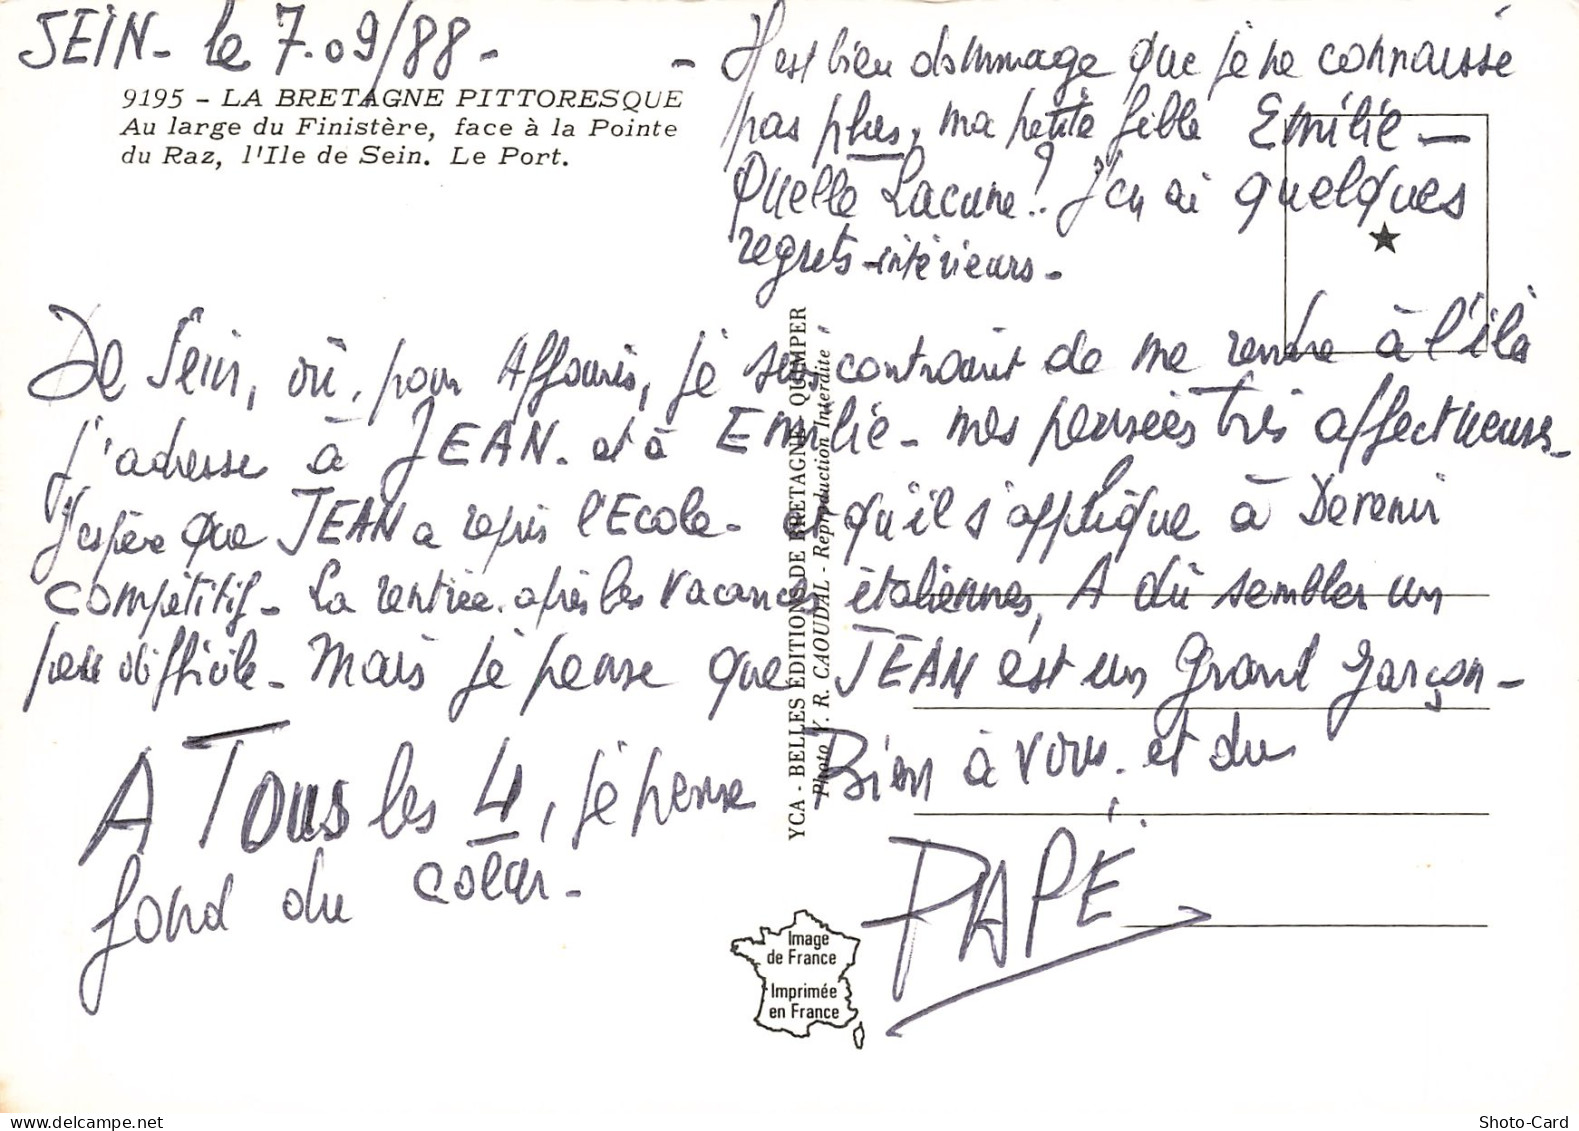 SEIN - le 7.09/88 -
9195 - LA BRETAGNE PITTORESQUE
Au large du Finistère, face à la Pointe
du Raz, l'Ile de Sein. Le Port.
- Il est bien dommage que je ne connaisse
pas plus, ma petite fille Emilie -
Quelle Lacune !.. J'en ai quelques
regrets intérieurs -
De Sein, où, pour Affaires, je suis contraint de me rendre à l'île
j'adresse à JEAN - et à Emilie - mes pensées très affectueuses -
J'espère que JEAN a repris l'Ecole - et qu'il s'applique à Devenir
compétitif - La rentrée après les vacances italiennes, A dû sembler un
peu difficile - Mais je pense que JEAN est un Grand garçon -
A Tous les 4, je pense Bien à vous. et du
fond du coeur -
PAPÉ
YCA - BELLES ÉDITIONS DE BRETAGNE - QUIMPER
Photo Y. R. CAOUDAL - Reproduction Interdite
Image
de France
Imprimée
en France
Shoto-Card